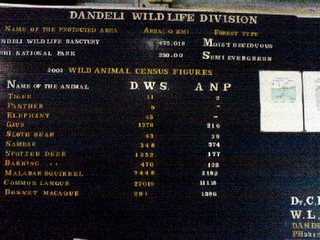 DANDELI WILD LIFE DIVISION
NAME OF THE PROTECTED AREA AREA FOREST TYPE
NDELI WILD LIFE SANCTURY 475.018 MOIST DECIDUOUS
SHI NATIONAL PARK 250.00 SEMI EVERGREEN
2002 WILD ANIMAL CENSUS FIGURES
NAME OF THE ANIMAL D.W.S. A N P
TIGER 11 2
PANTHER 9 -
ELEPHANT 45 -
GAUR 1376 210
SLOTH BEAR 43 39
SAMBAR 348 374
SPOTTED DEER 1252 177
BARKING 470 132
MALABAR SQUIRREL 7448 2182
COMMON LANGUR 27019
BONNET MACAQUE 1386
Dr.C.
W.L.
DANDE